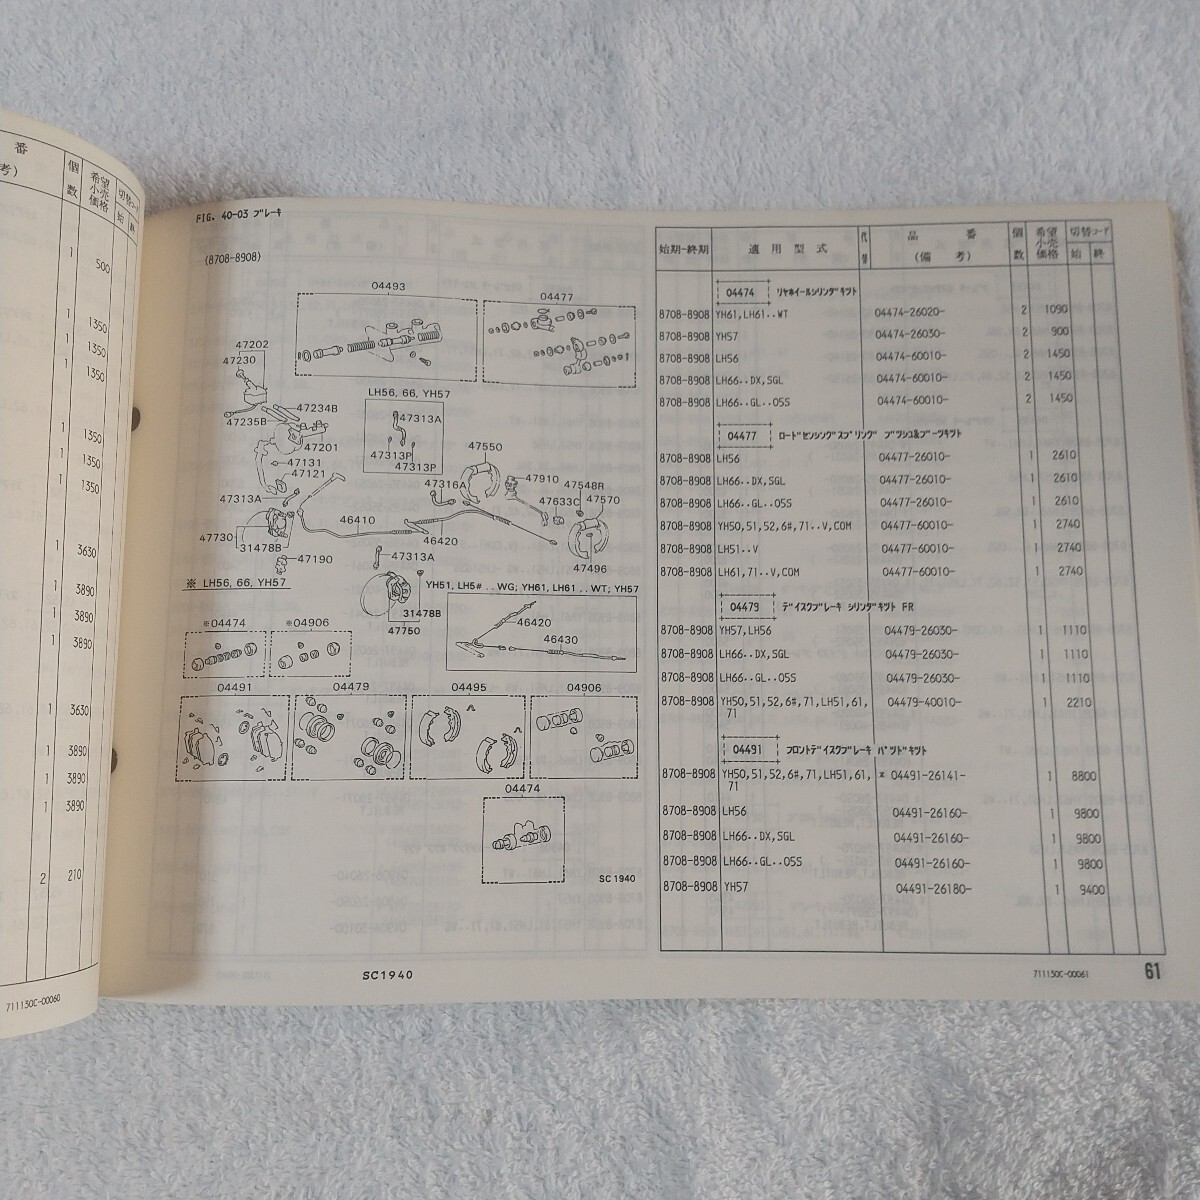 番
考)
個数
希望小売価格
切替コード
始
終
1 500
1 1350
1 1350
1 1350
1 1350
1 1350
1 1350
1 3630
1 3890
1 3890
1 3890
1 3630
1 3890
1 3890
1 3890
2 210
711150C-00060
FIG. 40-03 ブレーキ
(8708-8908)
04493
04477
47202
47230
47234B
47235B
47201
47131
47121
LH56, 66, YH57
47313A
47313P
47313P
47550
47316A
47910
47548R
47633C
47570
47313A
47730
31478B
46410
46420
47190
47313A
47496
※ LH56, 66, YH57
31478B
47750
YH51, LH5#..WG; YH61, LH61..WT; YH57
46420
46430
※04474
※04906
04491
04479
04495
04906
04474
SC1940
SC1940
始期-終期
適用型式
代替
品番
(備考)
個数
希望小売価格
切替コード
始
終
04474 リヤホイールシリンダキット
8708-8908 YH61,LH61..WT 04474-26020- 2 1090
8708-8908 YH57 04474-26030- 2 900
8708-8908 LH56 04474-60010- 2 1450
8708-8908 LH66..DX,SGL 04474-60010- 2 1450
8708-8908 LH66..GL..O5S 04474-60010- 2 1450
04477 ロードセンシングスプリング ブツシユ&ブーツキツト
8708-8908 LH56 04477-26010- 1 2610
8708-8908 LH66..DX,SGL 04477-26010- 1 2610
8708-8908 LH66..GL..O5S 04477-26010- 1 2610
8708-8908 YH50,51,52,6#,71..V,COM 04477-60010- 1 2740
8708-8908 LH51..V 04477-60010- 1 2740
8708-8908 LH61,71..V,COM 04477-60010- 1 2740
04479 デイスクブレーキ シリンダキツト FR
8708-8908 YH57,LH56 04479-26030- 1 1110
8708-8908 LH66..DX,SGL 04479-26030- 1 1110
8708-8908 LH66..GL..O5S 04479-26030- 1 1110
8708-8908 YH50,51,52,6#,71,LH51,61, 04479-40010- 1 2210
71
04491 フロントデイスクブレーキ パツドキツト
8708-8908 YH50,51,52,6#,71,LH51,61, * 04491-26141- 1 8800
71
8708-8908 LH56 04491-26160- 1 9800
8708-8908 LH66..DX,SGL 04491-26160- 1 9800
8708-8908 LH66..GL..O5S 04491-26160- 1 9800
8708-8908 YH57 04491-26180- 1 9400
711150C-00061
61